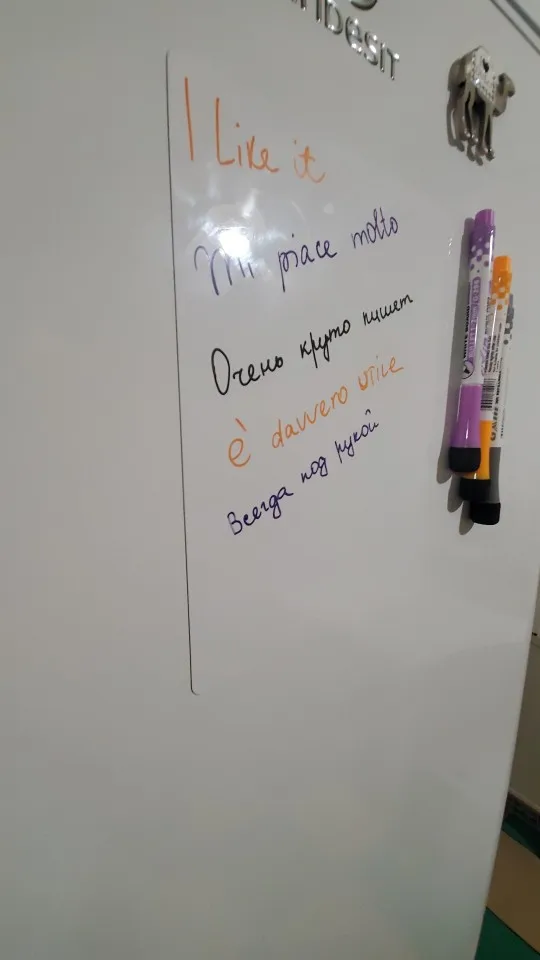 indesit
I Like it
Mi piace molto
Очень круто пишет
è davvero utile
Всегда под рукой